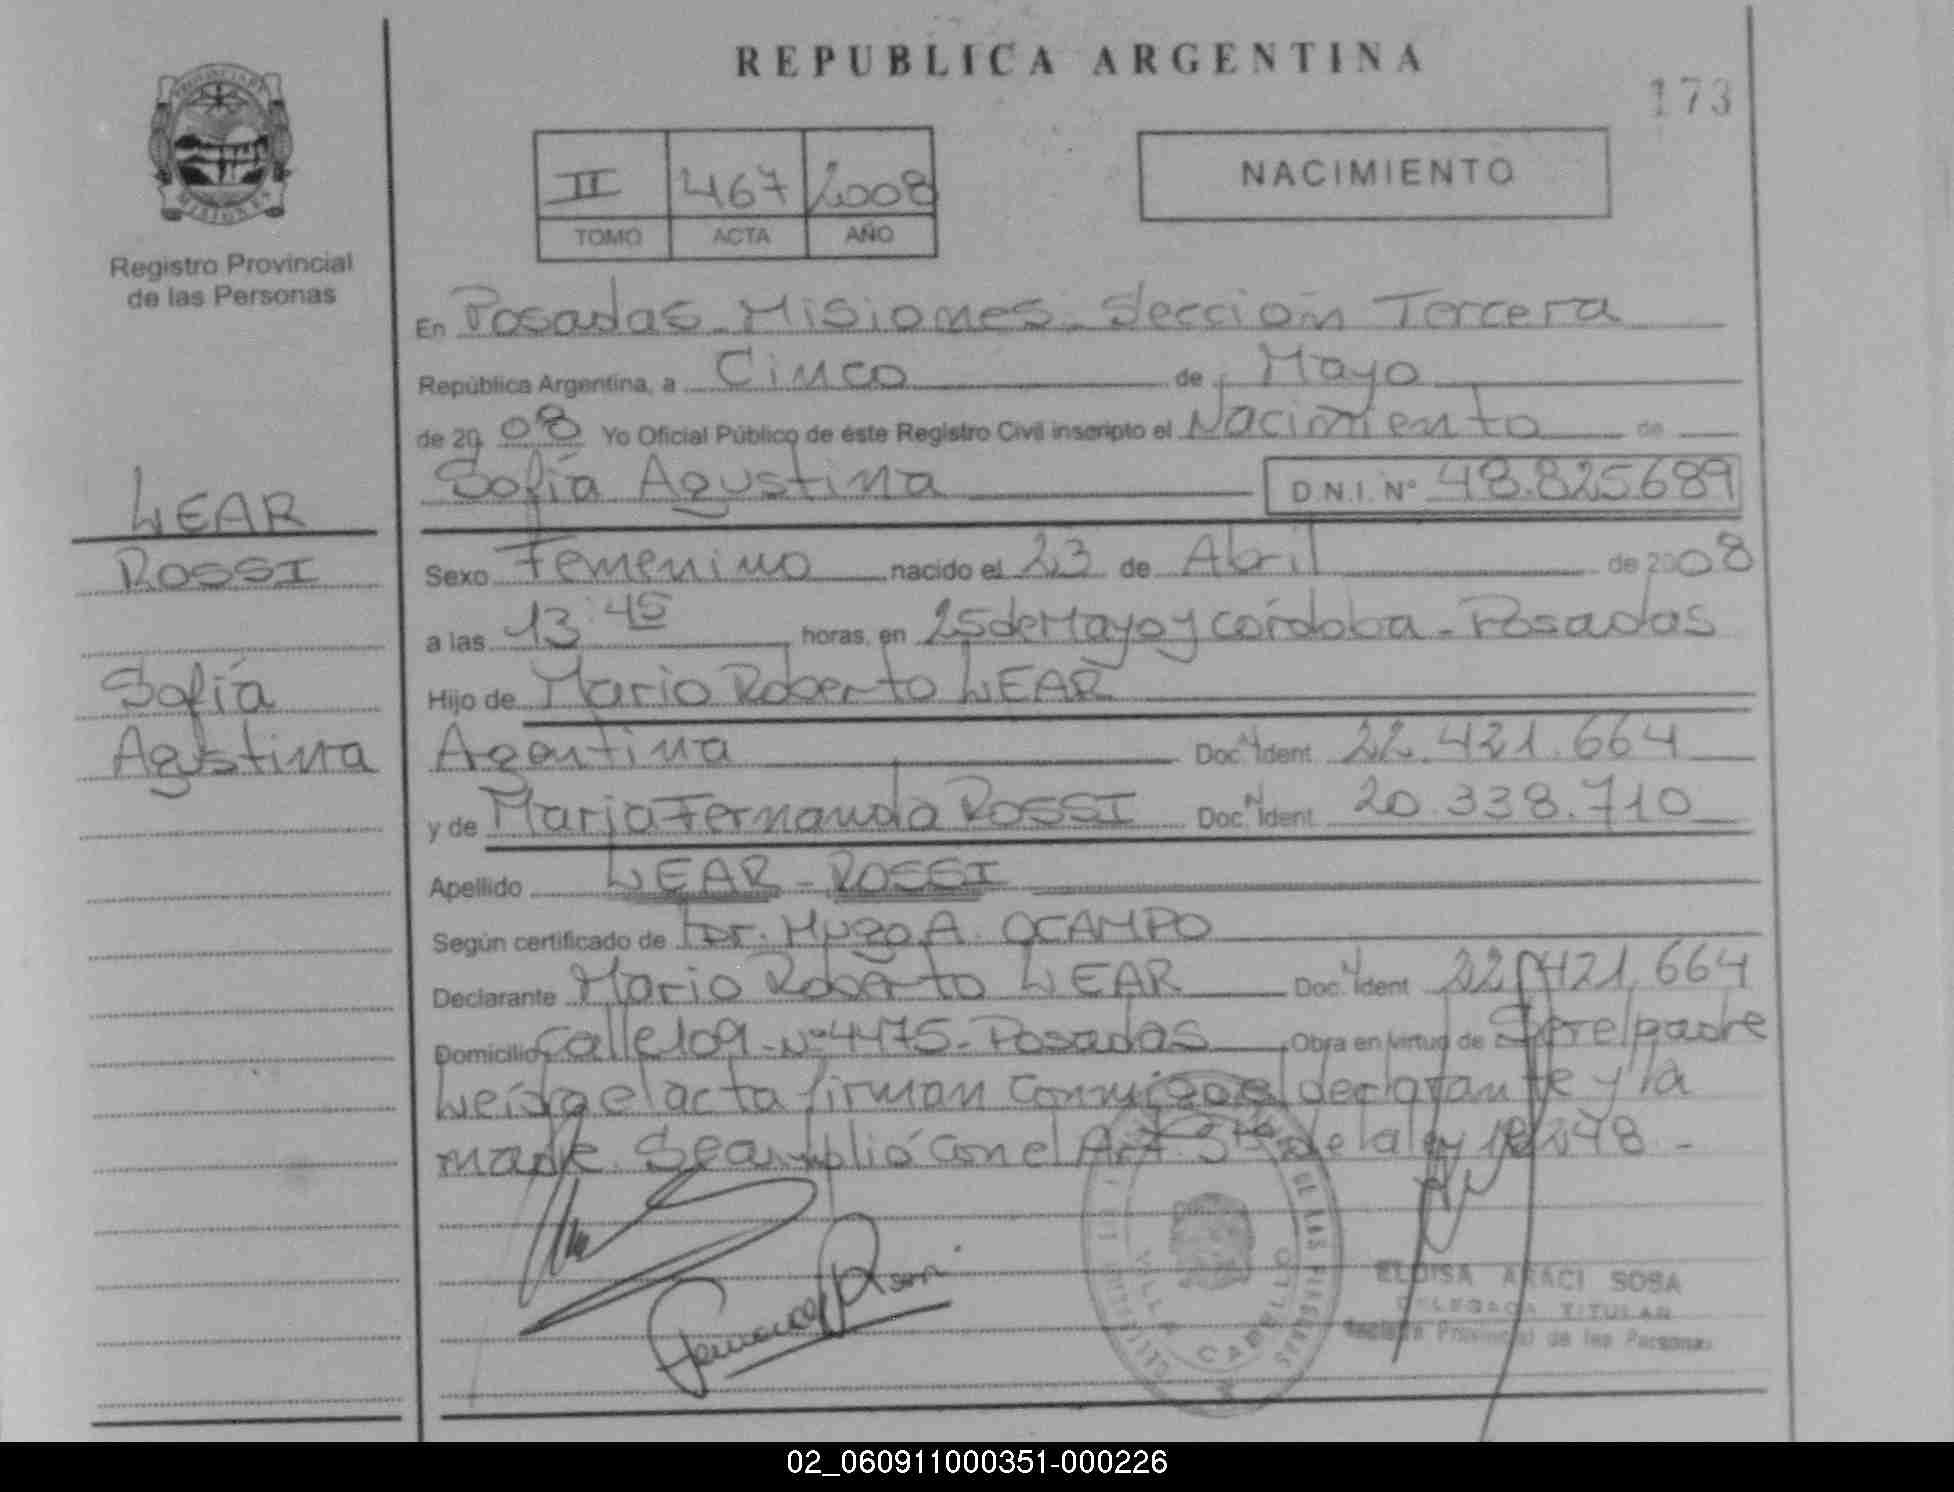 REPUBLICA ARGENTINA
173
PROVINCIA DE
MISIONES
Registro Provincial
de las Personas
II 467 2008
TOMO ACTA AÑO
NACIMIENTO
En Posadas - Misiones - Sección Tercera
República Argentina, a Cinco de Mayo
de 2008 Yo Oficial Público de éste Registro Civil inscripto el Nacimiento de
Sofía Agustina D.N.I. N° 48.825.689
LEAR
ROSSI
Sofía
Agustina
Sexo Femenino nacido el 23 de Abril de 2008
a las 13:45 horas, en 25 de Mayo y Córdoba - Posadas
Hijo de Mario Roberto LEAR
Argentina Doc. N Ident 22.421.664
y de María Fernanda ROSSI Doc. N Ident 20.338.710
Apellido LEAR - ROSSI
Según certificado de Dr. Hugo A. OCAMPO
Declarante Mario Roberto LEAR Doc. N Ident 22.421.664
Domicilio Calle 109 - N° 4475 - Posadas Obra en virtud de Ser el padre
Leída el acta firman conmigo el declarante y la
madre. Se amplió con el Art. 5to de la ley 18.248 -
Fernanda Rossi
DE LAS PERSONAS
VILLA CABELLO
ELOISA ARACI SOSA
DELEGADA TITULAR
Registro Provincial de las Personas
02_060911000351-000226